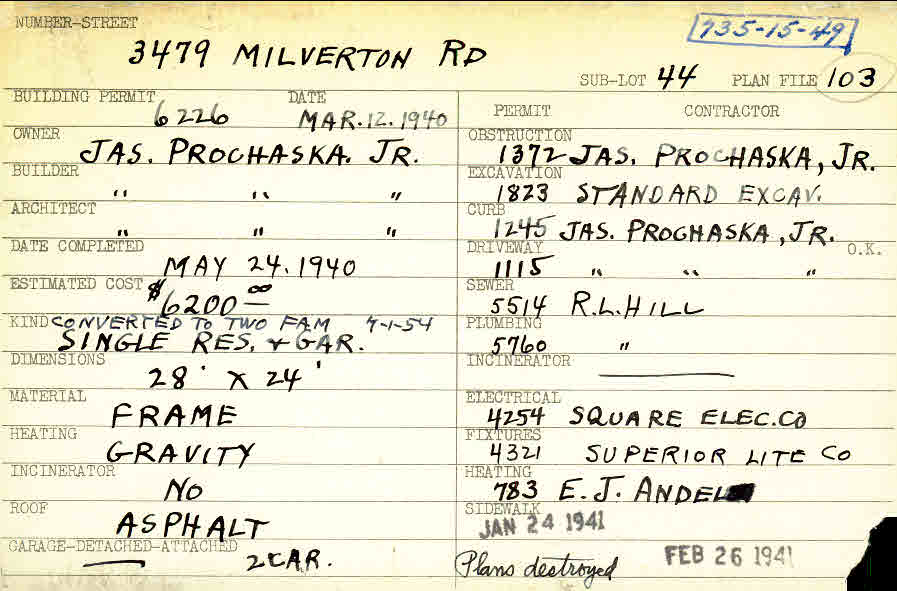 NUMBER-STREET
735-15-49
3479 MILVERTON RD
SUB-LOT 44 PLAN FILE 103
BUILDING PERMIT 6226 DATE MAR. 12. 1940
OWNER JAS. PROCHASKA. JR.
BUILDER " " "
ARCHITECT " " "
DATE COMPLETED MAY 24. 1940
ESTIMATED COST $6200 00
KIND CONVERTED TO TWO FAM 7-1-54
SINGLE RES. & GAR.
DIMENSIONS 28' X 24'
MATERIAL FRAME
HEATING GRAVITY
INCINERATOR NO
ROOF ASPHALT
GARAGE-DETACHED-ATTACHED — 2 CAR.
PERMIT CONTRACTOR
OBSTRUCTION 1372 JAS. PROCHASKA, JR.
EXCAVATION 1823 STANDARD EXCAV.
CURB 1245 JAS. PROCHASKA, JR.
DRIVEWAY 1115 " " " O.K.
SEWER 5514 R.L. HILL
PLUMBING 5760 "
INCINERATOR —
ELECTRICAL 4254 SQUARE ELEC. CO
FIXTURES 4321 SUPERIOR LITE CO
HEATING 783 E. J. ANDEL
SIDEWALK JAN 24 1941
Plans destroyed FEB 26 1941